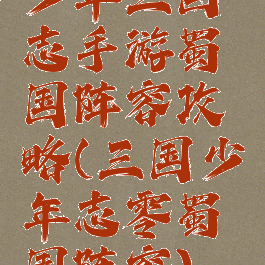 少年三国
志手游蜀
国阵容攻
略(三国少
年志零蜀
国阵容)